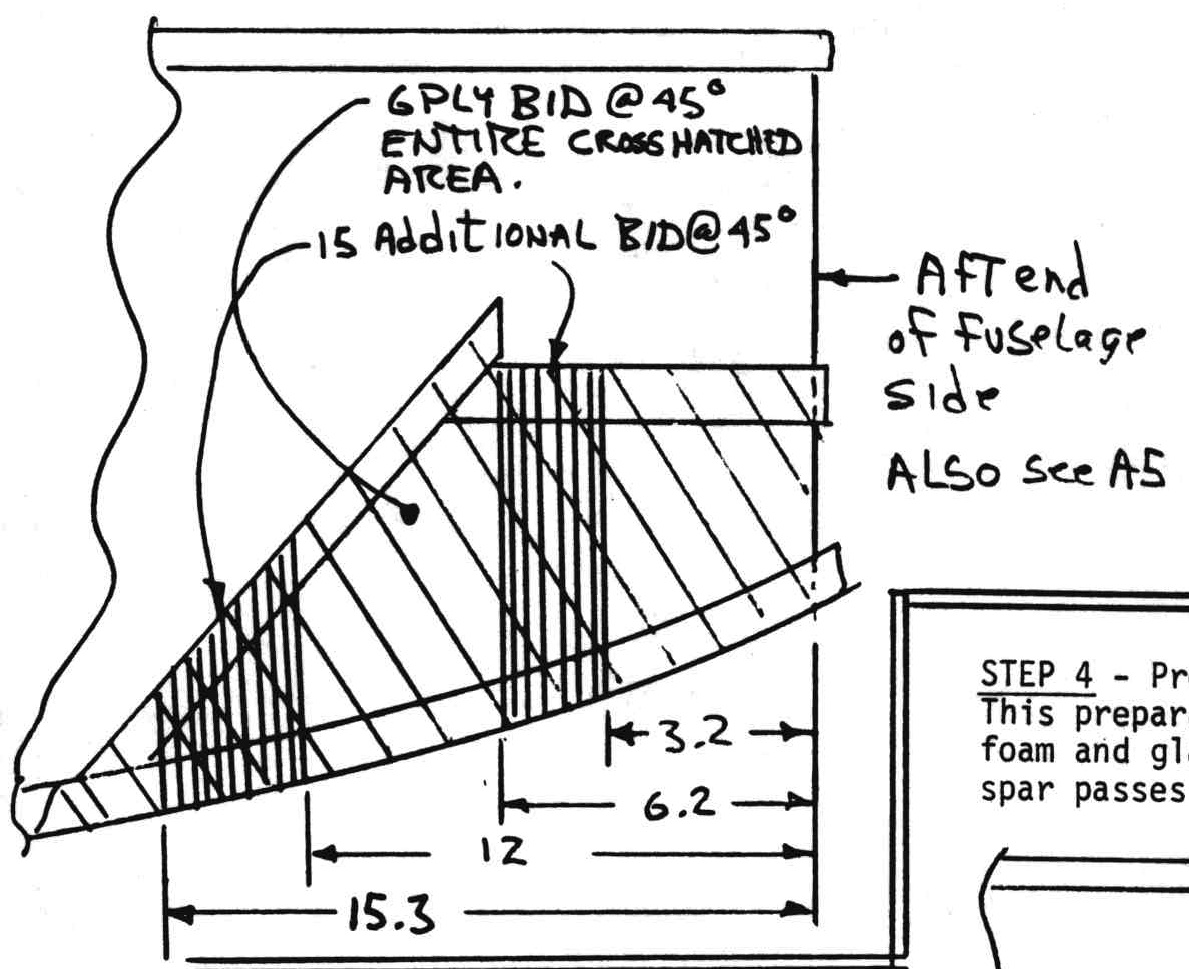 6PLY BID @ 45°
ENTIRE CROSSHATCHED
AREA.
15 AddiTIONAL BID @ 45°
AFT end
of Fuselage
side
ALSO see A5
3.2
6.2
12
15.3
STEP 4 - Pr
This prepar
foam and gl
spar passes